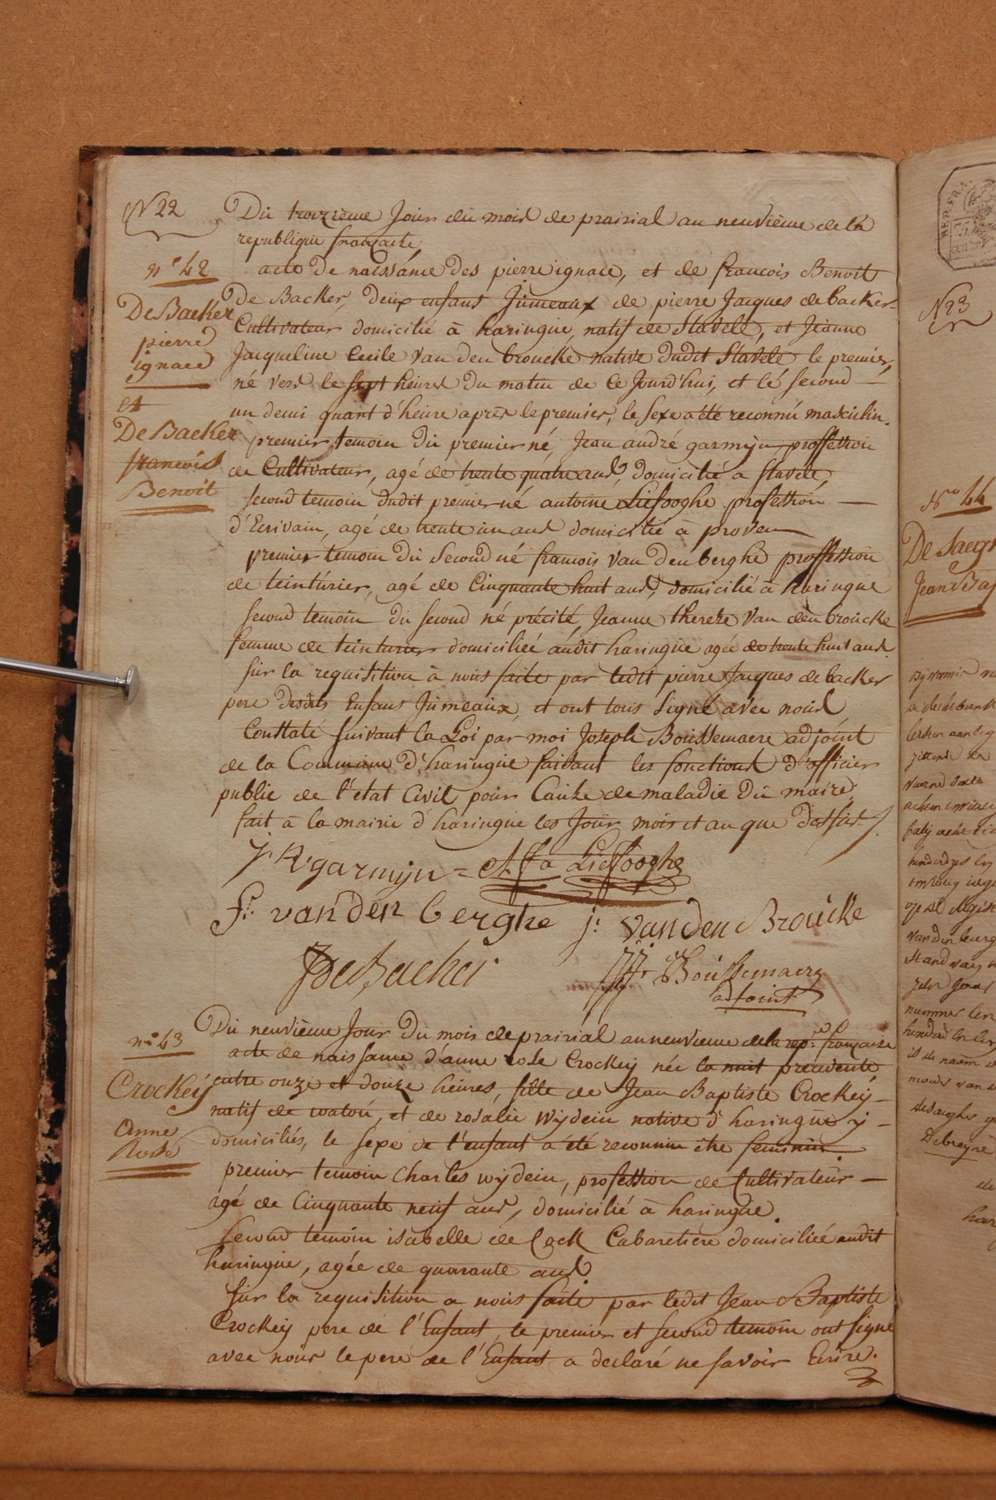 N 22
Du trouzieme Jour du mois de prairial an neuvieme de la
republique francaise
n° 42
acte de naissance des pierre ignace, et de francois Benoit
De Backer
pierre
ignace
et
De Backer
francois
Benoit
De Backer, deux enfans Jumeaux de pierre Jacques de backer
Cultivateur domicilié à haringue natif de Stavele, et Jeanne
Jacqueline Cecile van den broucke native dudit Stavele le premier,
né vers le sept heures du matin de ce Jourd'hui, et le second
un demi quart d'heure après le premier, le sexe a été reconnu masculin.
premier temoin du premier né, Jean andré garmijn proffession
de Cultivateur, agé de trente quatre ans, domicilié a stavele,
second temoin dudit premier né antoine Liefooghe profession
d'Ecrivain, agé de trente un ans domicilié à proven
premier temoin du second né francois van den berghe proffession
de teinturier, agé de Cinquante huit ans, domicilié à haringue
second temoin du second né précité, Jeanne thereze van den broucke
femme de teinturier domiciliée audit haringue agée de trente huit ans.
sur la requisition à nous faite par ledit pierre Jacques de backer
pere desdits Enfans Jumeaux, et ont tous signé avec nous
Constaté suivant la Loi par moi Joseph Boussemaere adjoint
de la Commune d'haringue faisant les fonctions d'officier
public de l'etat Civil pour Cause de maladie du maire
fait à la mairie d'haringue les Jour mois et an que dessus
J: A: garmijn = Liefooghe
F: van den berghe j: van den Broucke
De Backer
J: Boussemaere
adjoint
n° 43
Crockeÿ
anne
Rose
Du neuvieme Jour du mois de prairial an neuvieme de la rep: francaise
acte de naissance d'anne rose Crockeÿ née la nuit precedente
entre onze et douze heures, fille de Jean Baptiste Crockeÿ
natif de watou, et de rosalie wÿdein native d'haringue ÿ
domiciliés, le sexe de l'enfant a été reconnu être feminin.
premier temoin Charles wÿdein, profession de Cultivateur
agé de Cinquante neuf ans, domicilié à haringue
second temoin isabelle de Cock Cabaretiere domiciliée audit
haringue, agée de quarante ans
sur la requisition a nous faite par ledit Jean Baptiste
Crockeÿ pere de l'Enfant, le premier et second temoin ont signé
avec nous le pere de l'Enfant a declaré ne savoir Ecrire.
N 23
N° 44